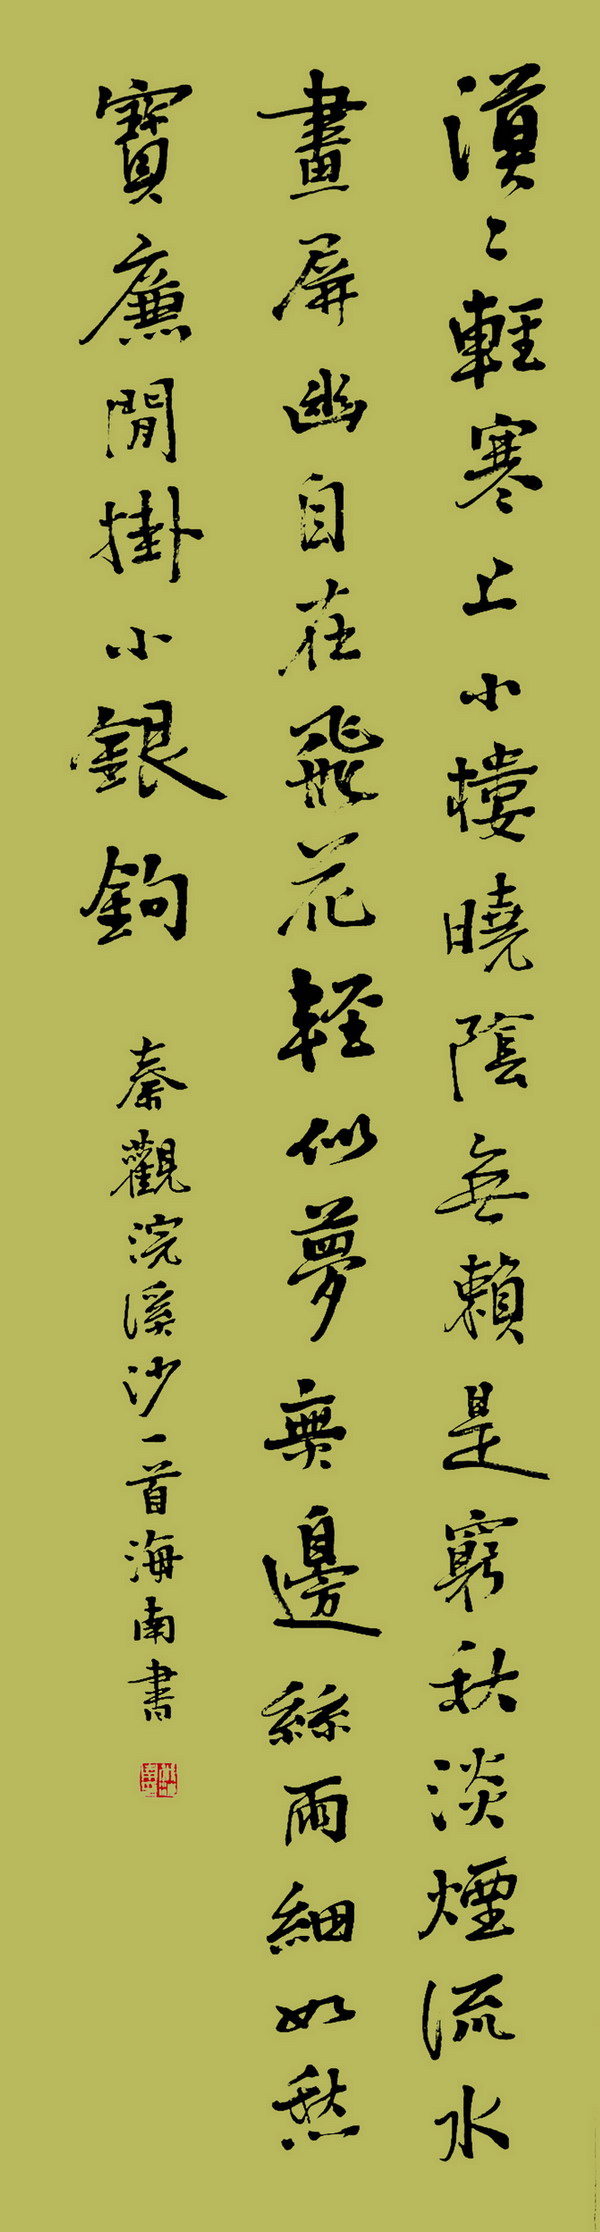 漠〻輕寒上小樓曉陰無賴是窮秋淡煙流水
畫屏幽自在飛花輕似夢無邊絲雨細如愁
寶廉閒掛小銀鉤
秦觀浣溪沙一首海南書